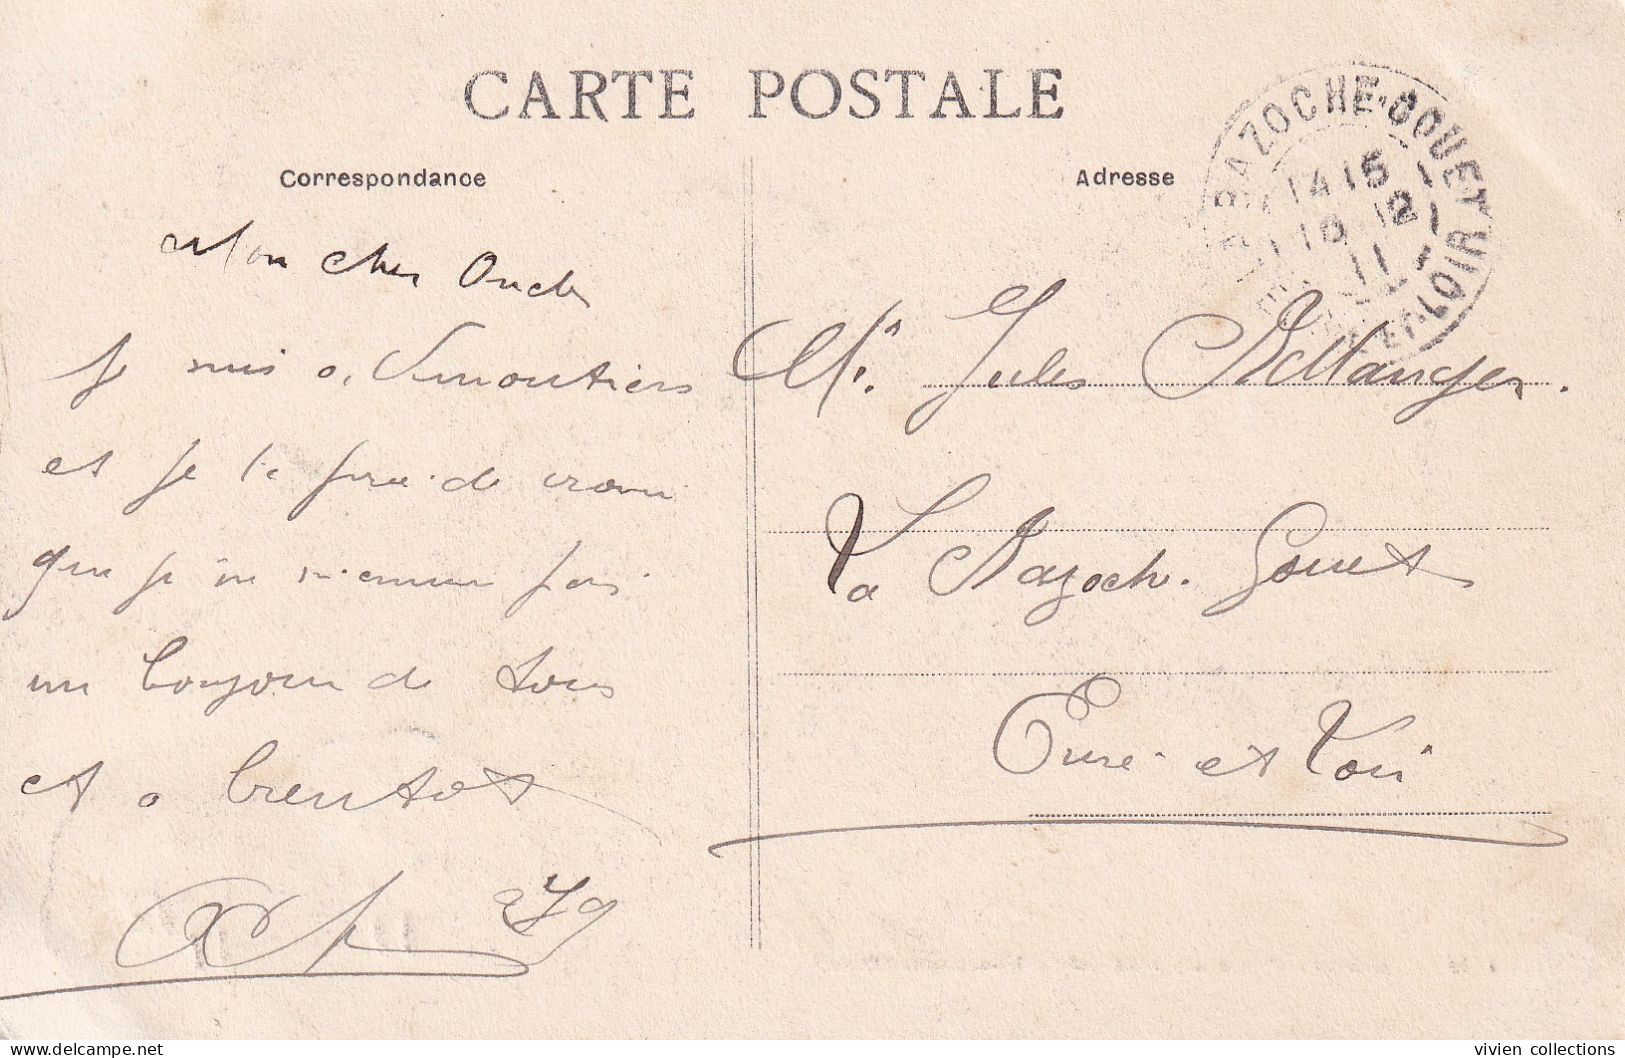 CARTE POSTALE
Correspondance
Adresse
BAZOCHE-GOUET
14 15
10 12
11
ET-LOIR
Mon cher Oncle
Je suis a
et je te prie de croire
que je ne pas
un bonjour de tous
et a bientot
279
Mr. Jules Bellanger.
La Bazoche. Gouet
Eure et Loir
delcampe.net
vivien collections